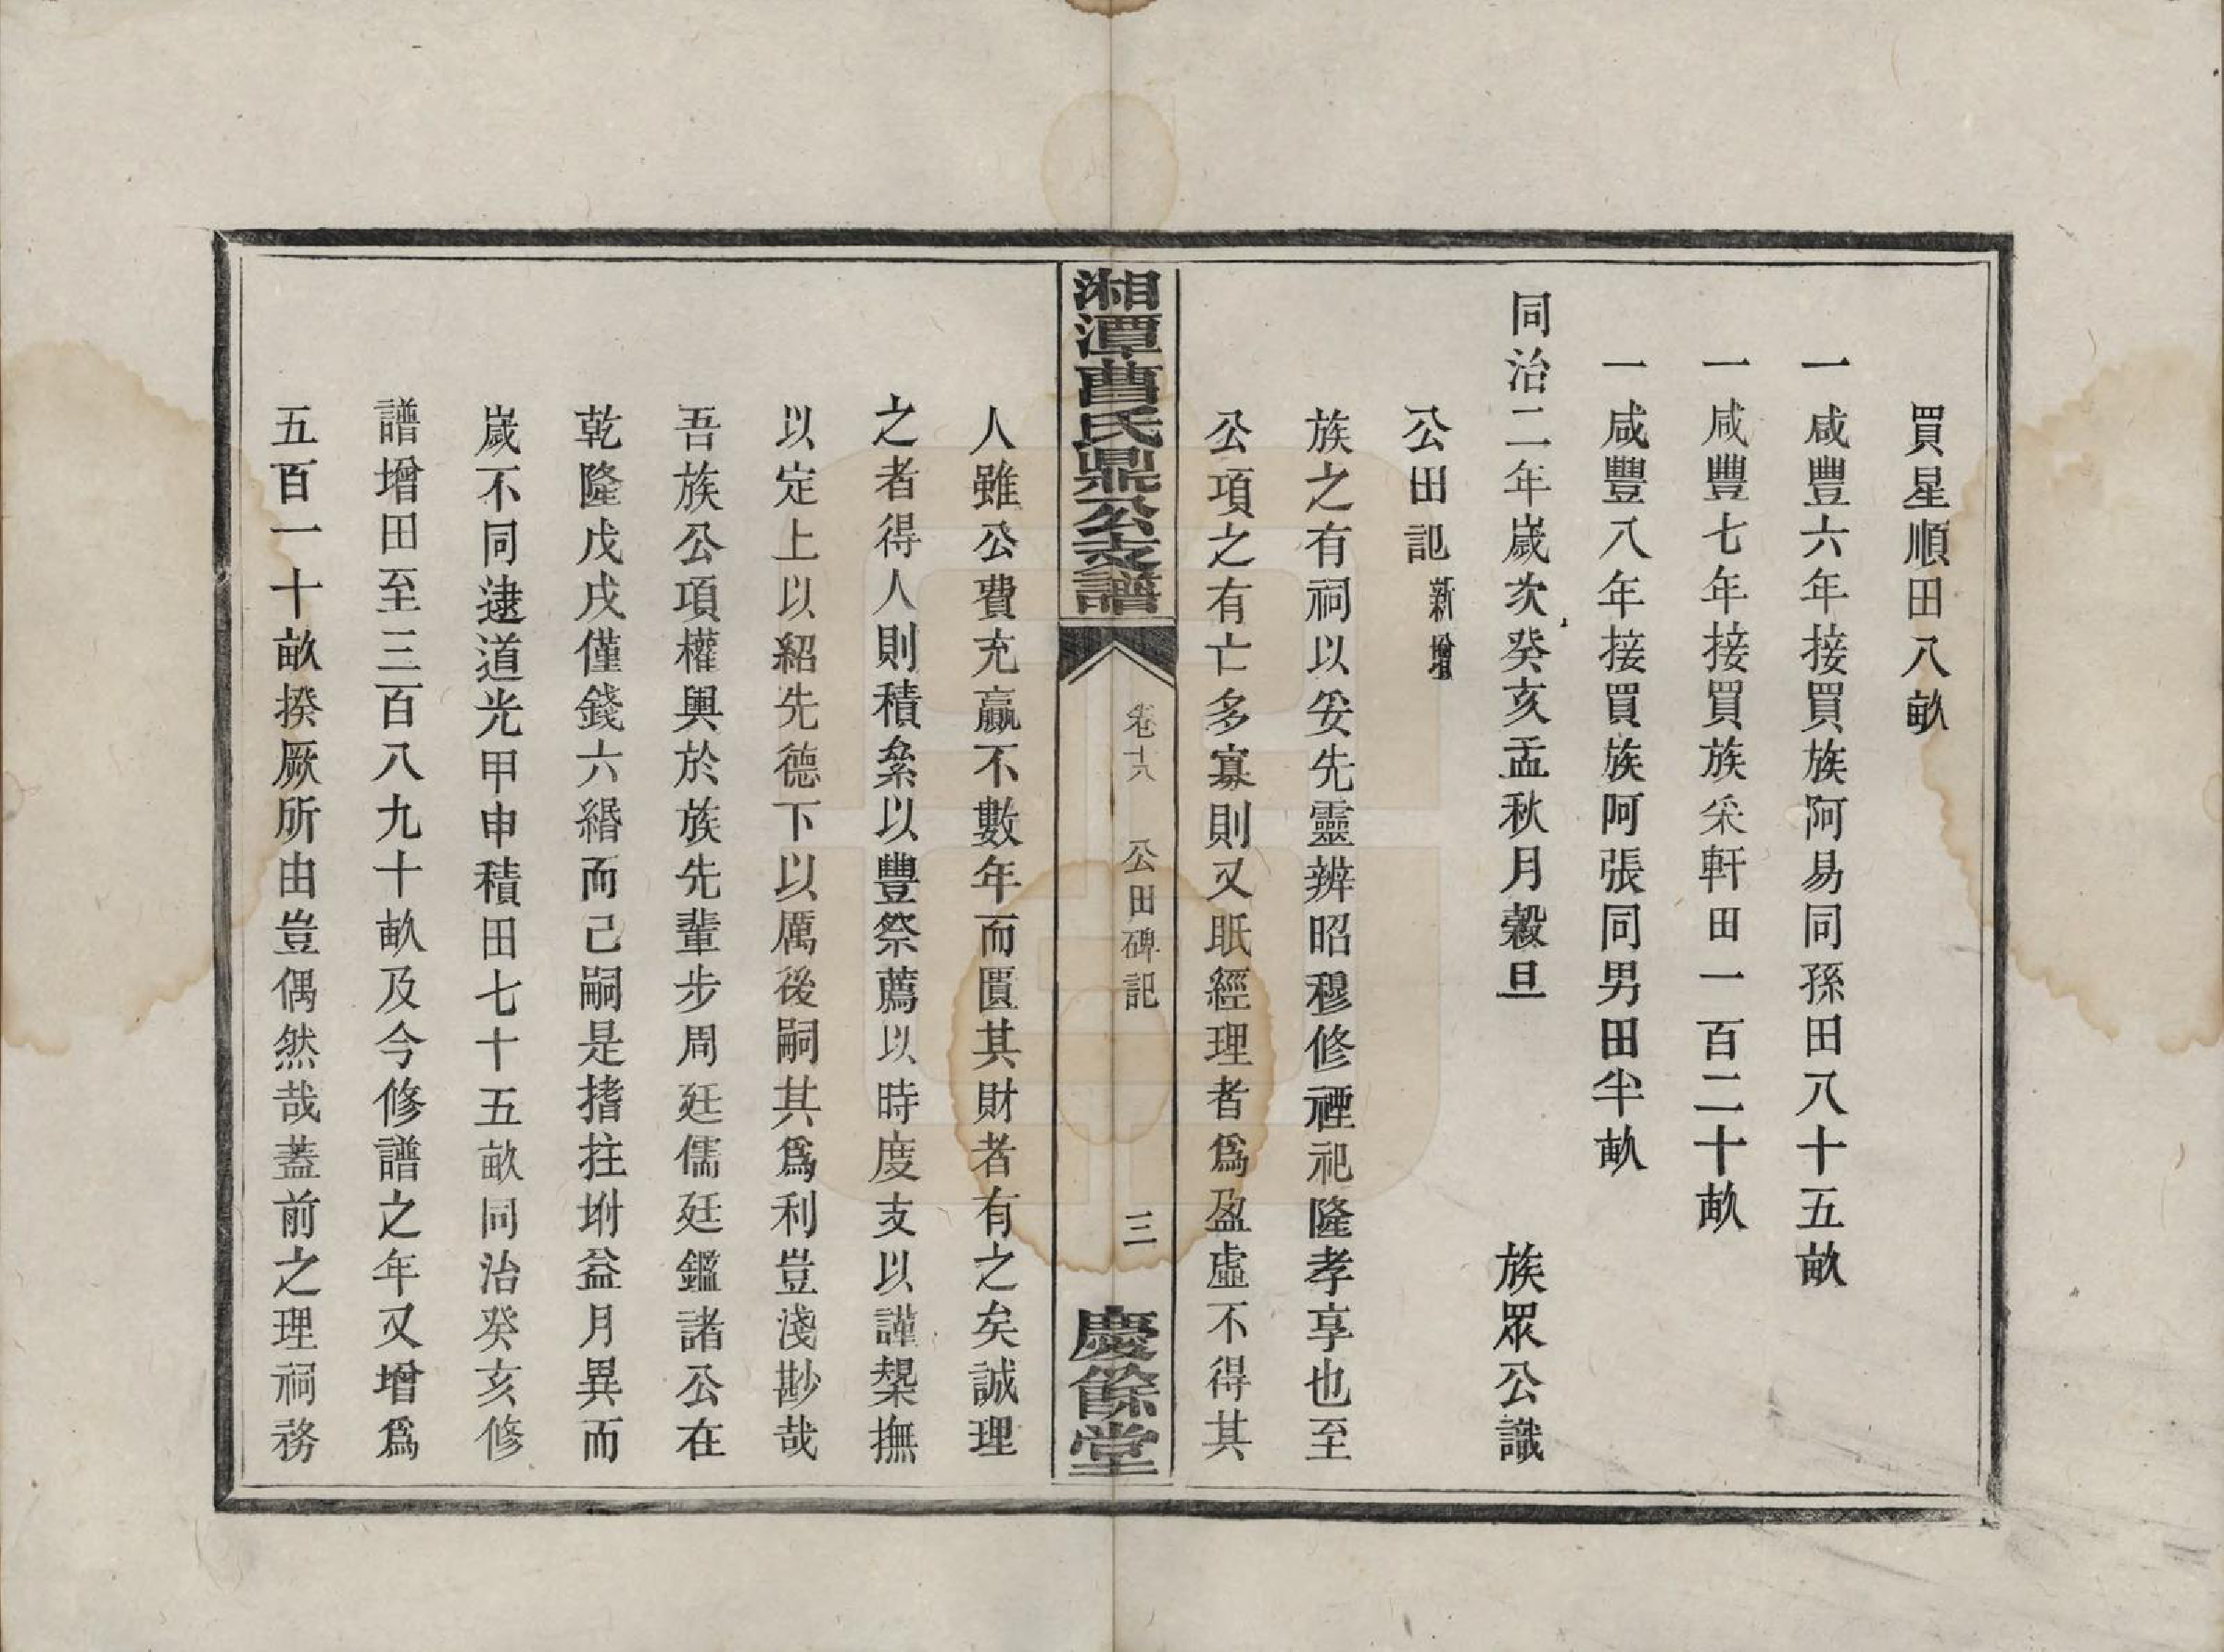 買星順田八畝
一咸豐六年接買族阿易同孫田八十五畝
一咸豐七年接買族采軒田一百二十畝
一咸豐八年接買族阿張同男田半畝
同治二年歲次癸亥孟秋月穀旦　族眾公識
公田記新增
族之有祠以妥先靈辨昭穆修禋祀隆孝享也至
公項之有亡多寡則又眂經理者爲盈虛不得其
湘潭曹氏鼎公支譜　卷十八　公田碑記　三　慶餘堂
人雖公費充贏不數年而匱其財者有之矣誠理
之者得人則積絫以豐祭薦以時度支以謹槼撫
以定上以紹先德下以厲後嗣其爲利豈淺尠哉
吾族公項權輿於族先輩步周廷儒廷鑑諸公在
乾隆戊戌僅錢六緡而己嗣是搘拄坿益月異而
歲不同逮道光甲申積田七十五畝同治癸亥修
譜增田至三百八九十畝及今修譜之年又增爲
五百一十畝揆厥所由豈偶然哉蓋前之理祠務